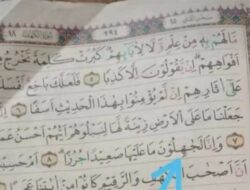 ٢٩٤
مَّا لَهُم بِهِۦ مِنْ عِلْمٍ وَلَا لِـَٔابَآئِهِمْ كَبُرَتْ كَلِمَةً تَخْرُجُ
أَفْوَٰهِهِمْ إِن يَقُولُونَ إِلَّا كَذِبًا ٥ فَلَعَلَّكَ بَـٰخِعٌ
عَلَىٰٓ ءَاثَـٰرِهِمْ إِن لَّمْ يُؤْمِنُوا۟ بِهَـٰذَا ٱلْحَدِيثِ أَسَفًا ٦
جَعَلْنَا مَا عَلَى ٱلْأَرْضِ زِينَةً لَّهَا لِنَبْلُوَهُمْ أَيُّهُمْ أَحْسَنُ
٧ وَإِنَّا لَجَـٰهِلُونَ مَا عَلَيْهَا صَعِيدًا جُرُزًا ٨ أَمْ حَسِبْتَ
أَنَّ أَصْحَـٰبَ وَٱلرَّقِيمِ كَانُوا۟ مِنْ